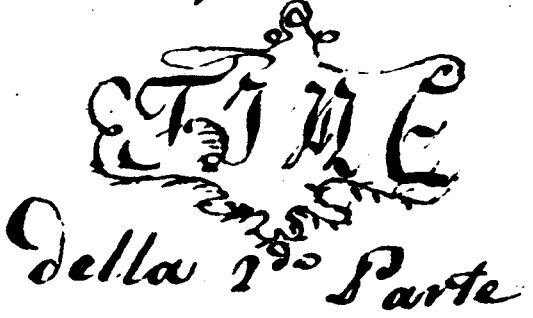 FINE
della 2do Parte